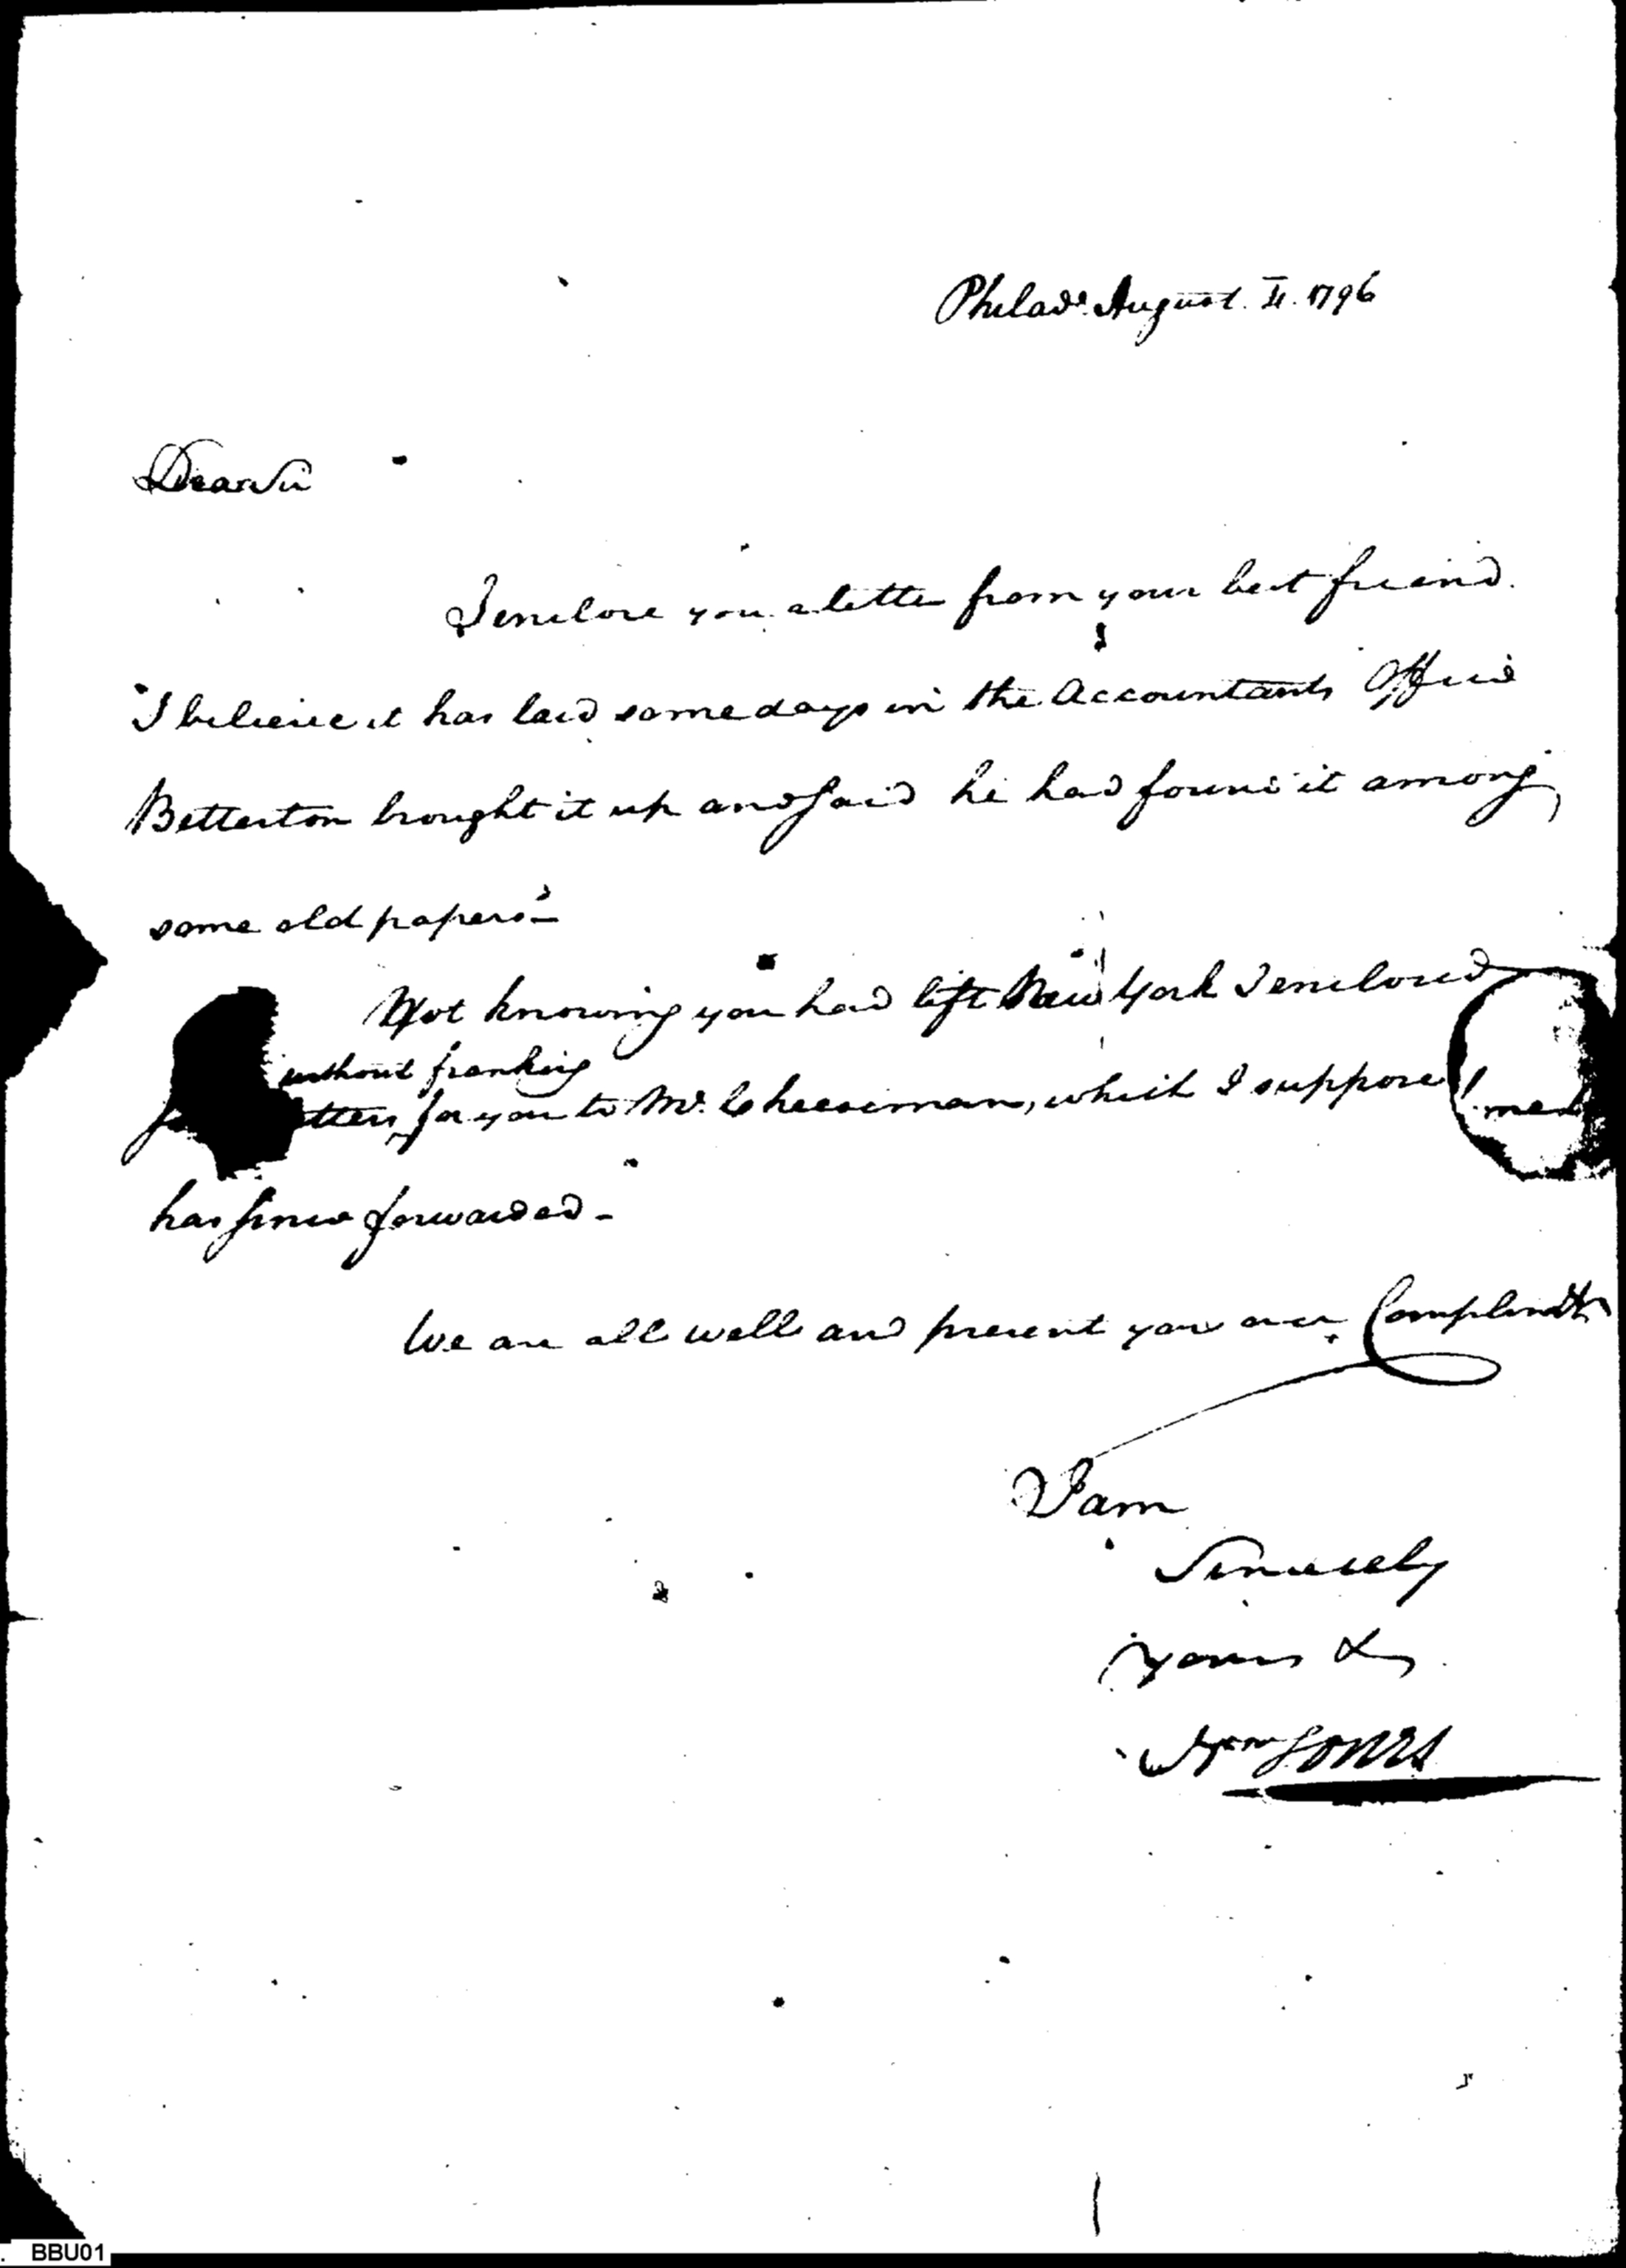 Philad.ª August. II. 1796
Dear Sir
I enclose you a letter from your best friend.
I believe it has laid some days in the Accountants Office
Betterton brought it up and said he had found it among
some old papers-
Not knowing you had left New York I enclosed
without franking
tters for you to Mr. Cheeseman, which I suppose
has since forwarded-
We are all well and present you our Complimts
I am
Sincerely
Yours &
Wm Jones
BBU01